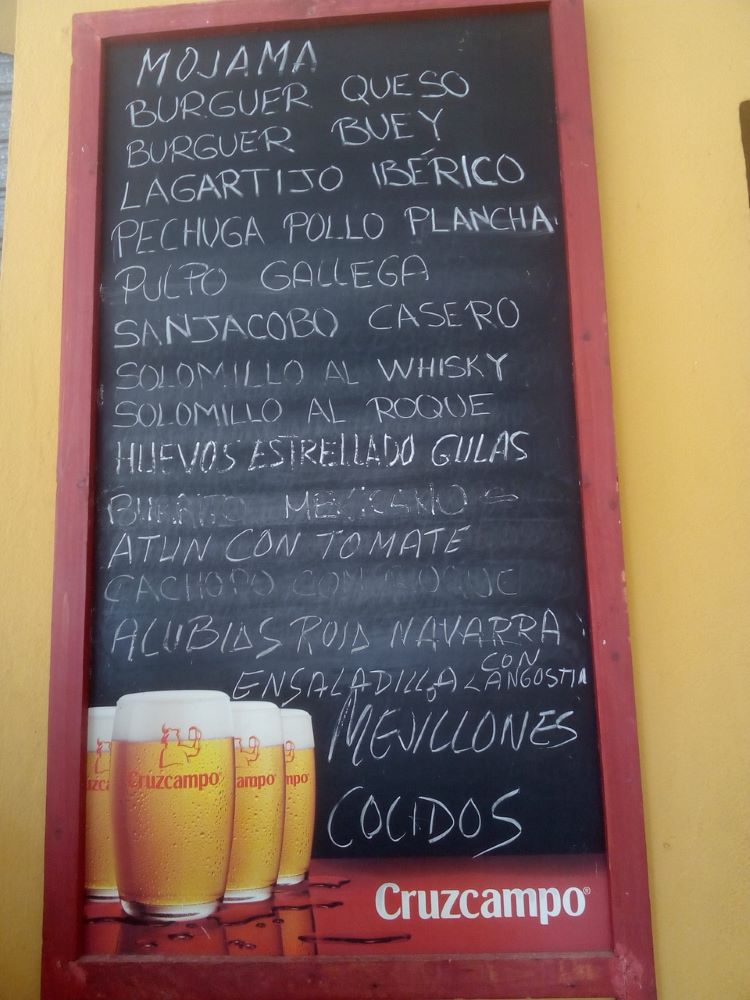 MOJAMA
BURGUER QUESO
BURGUER BUEY
LAGARTIJO IBÉRICO
PECHUGA POLLO PLANCHA.
PULPO GALLEGA
SANJACOBO CASERO
SOLOMILLO AL WHISKY
SOLOMILLO AL ROQUE
HUEVOS ESTRELLADO GULAS
BURRITO MEXICANO
ATUN CON TOMATE
CACHOPO CON ROQUE
ALUBIAS ROJA NAVARRA
ENSALADILLA CON LANGOSTIN
MEJILLONES
COCIDOS
Cruzcampo
ampo
mpo
Cruzcampo®